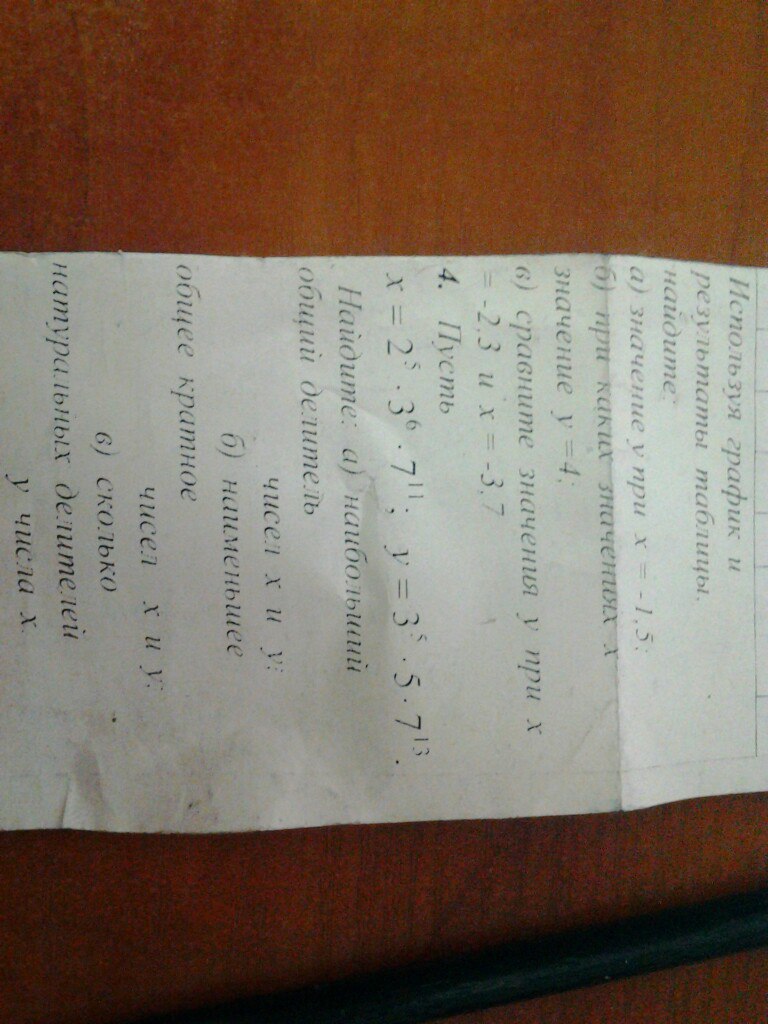 Используя график и
результаты таблицы,
найдите:
а) значение y при x = -1,5;
б) при каких значениях x
значение y = 4;
в) сравните значения y при x
= -2,3 и x = -3,7
4. Пусть
x = 2⁵ · 3⁶ · 7¹¹; y = 3⁵ · 5 · 7¹³.
Найдите: а) наибольший
общий делитель
чисел x и y;
б) наименьшее
общее кратное
чисел x и y;
в) сколько
натуральных делителей
у числа x